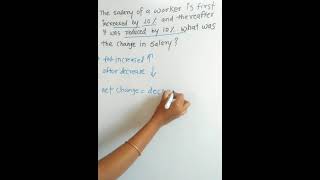 The salary of a worker is first
increased by 10% and thereafter
it was reduced by 10%. what was
the change in salary?
* first increased ↑
after decrease ↓
net change = dec